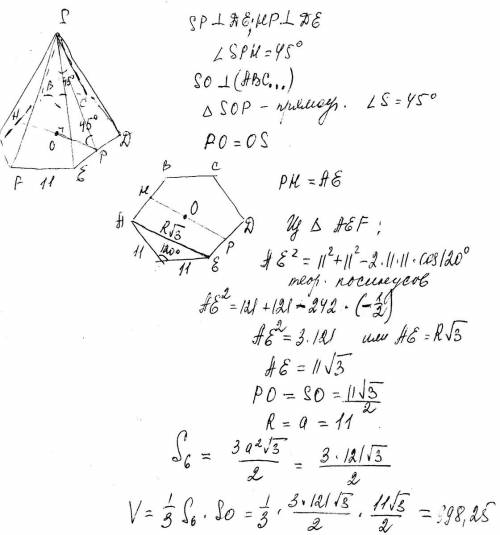 S
SP ⊥ AE; HP ⊥ DE
∠SPH = 45°
SO ⊥ (ABC...)
△SOP - прямоуг. ∠S = 45°
PO = OS
H B 45° C
45°
O P D
F 11 E
B C
H O
A R√3 D
P
11 120° 11 E
PH = AE
Из △AEF;
AE² = 11² + 11² - 2·11·11·cos120°
теор. косинусов
AE² = 121 + 121 - 242 · (-1/2)
AE² = 3·121 или AE = R√3
AE = 11√3
PO = SO = 11√3/2
R = a = 11
S₆ = 3a²√3/2 = 3·121√3/2
V = 1/3 S₆ · SO = 1/3 · 3·121√3/2 · 11√3/2 = 998,25